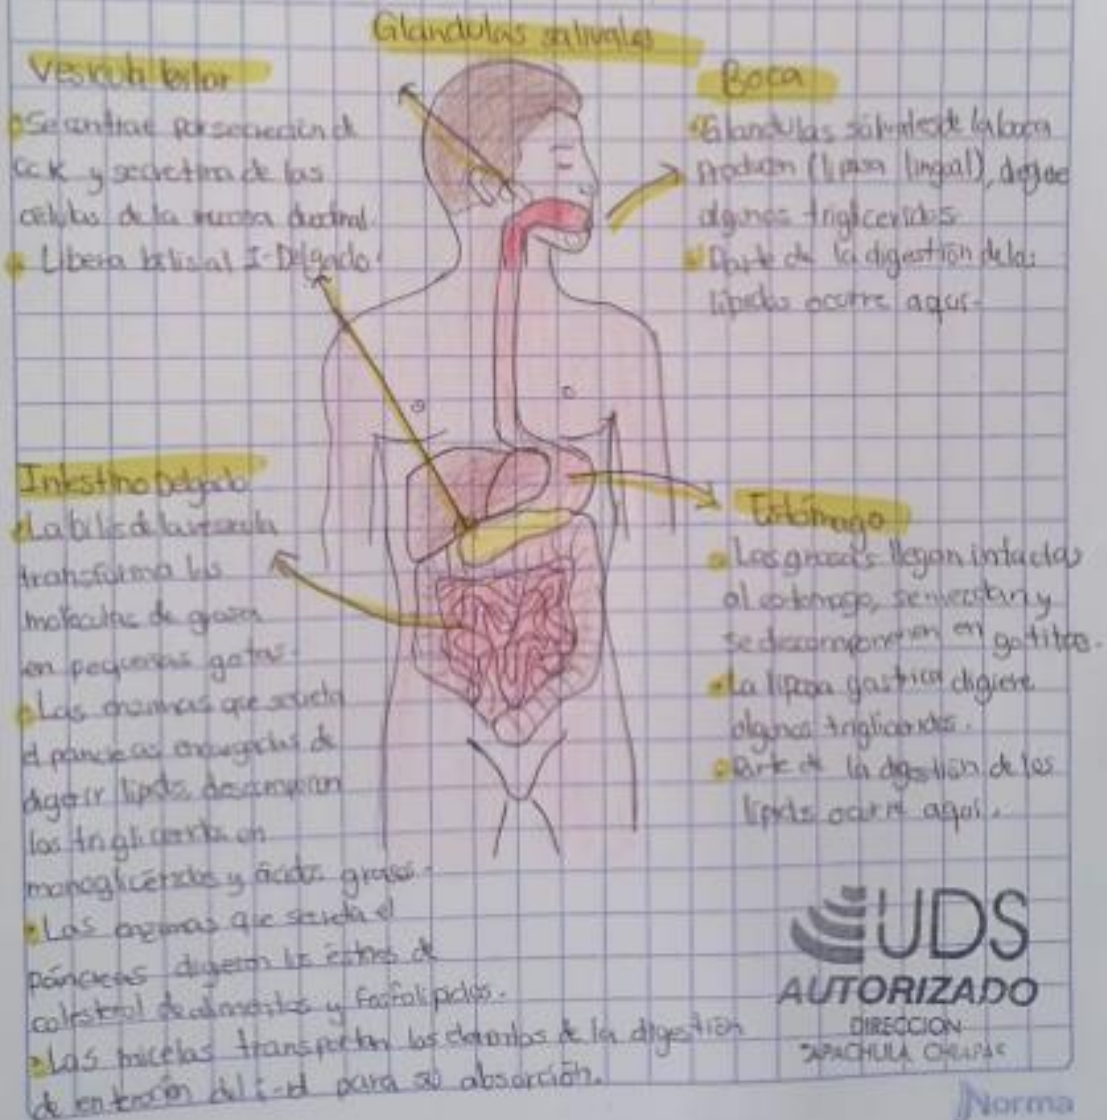 Glandulas salivales
Vesicula biliar
Se contrae por secreción de
CCK y secretina de las
células de la mucosa duodenal.
Libera bilis al I-Delgado.
Boca
Glandulas salivales de la boca
Producen (lipasa lingual), digiere
algunos trigliceridos
Parte de la digestión de los
lípidos ocurre aquí.
Intestino Delgado
La bilis de la vesicula
transforma las
moleculas de grasa
en pequeñas gotas.
Las enzimas que secreta
el páncreas encargadas de
digerir lipidos descomponen
los trigliceridos en
monoglicéridos y ácidos grasos.
Las enzimas que secreta el
páncreas digieren los ésteres de
colesterol de alimentos y fosfolipidos.
Las micelas transportan los de la digestión
de del i-d para su absorción.
Estómago
Las grasas llegan intactas
al estomago, se mezclan y
se descomponen en gotitas.
La lipasa gastrica digiere
algunos trigliceridos.
Parte de la digestión de los
lipidos ocurre aquí.
UDS
AUTORIZADO
DIRECCION
TAPACHULA CHIAPAS
Norma